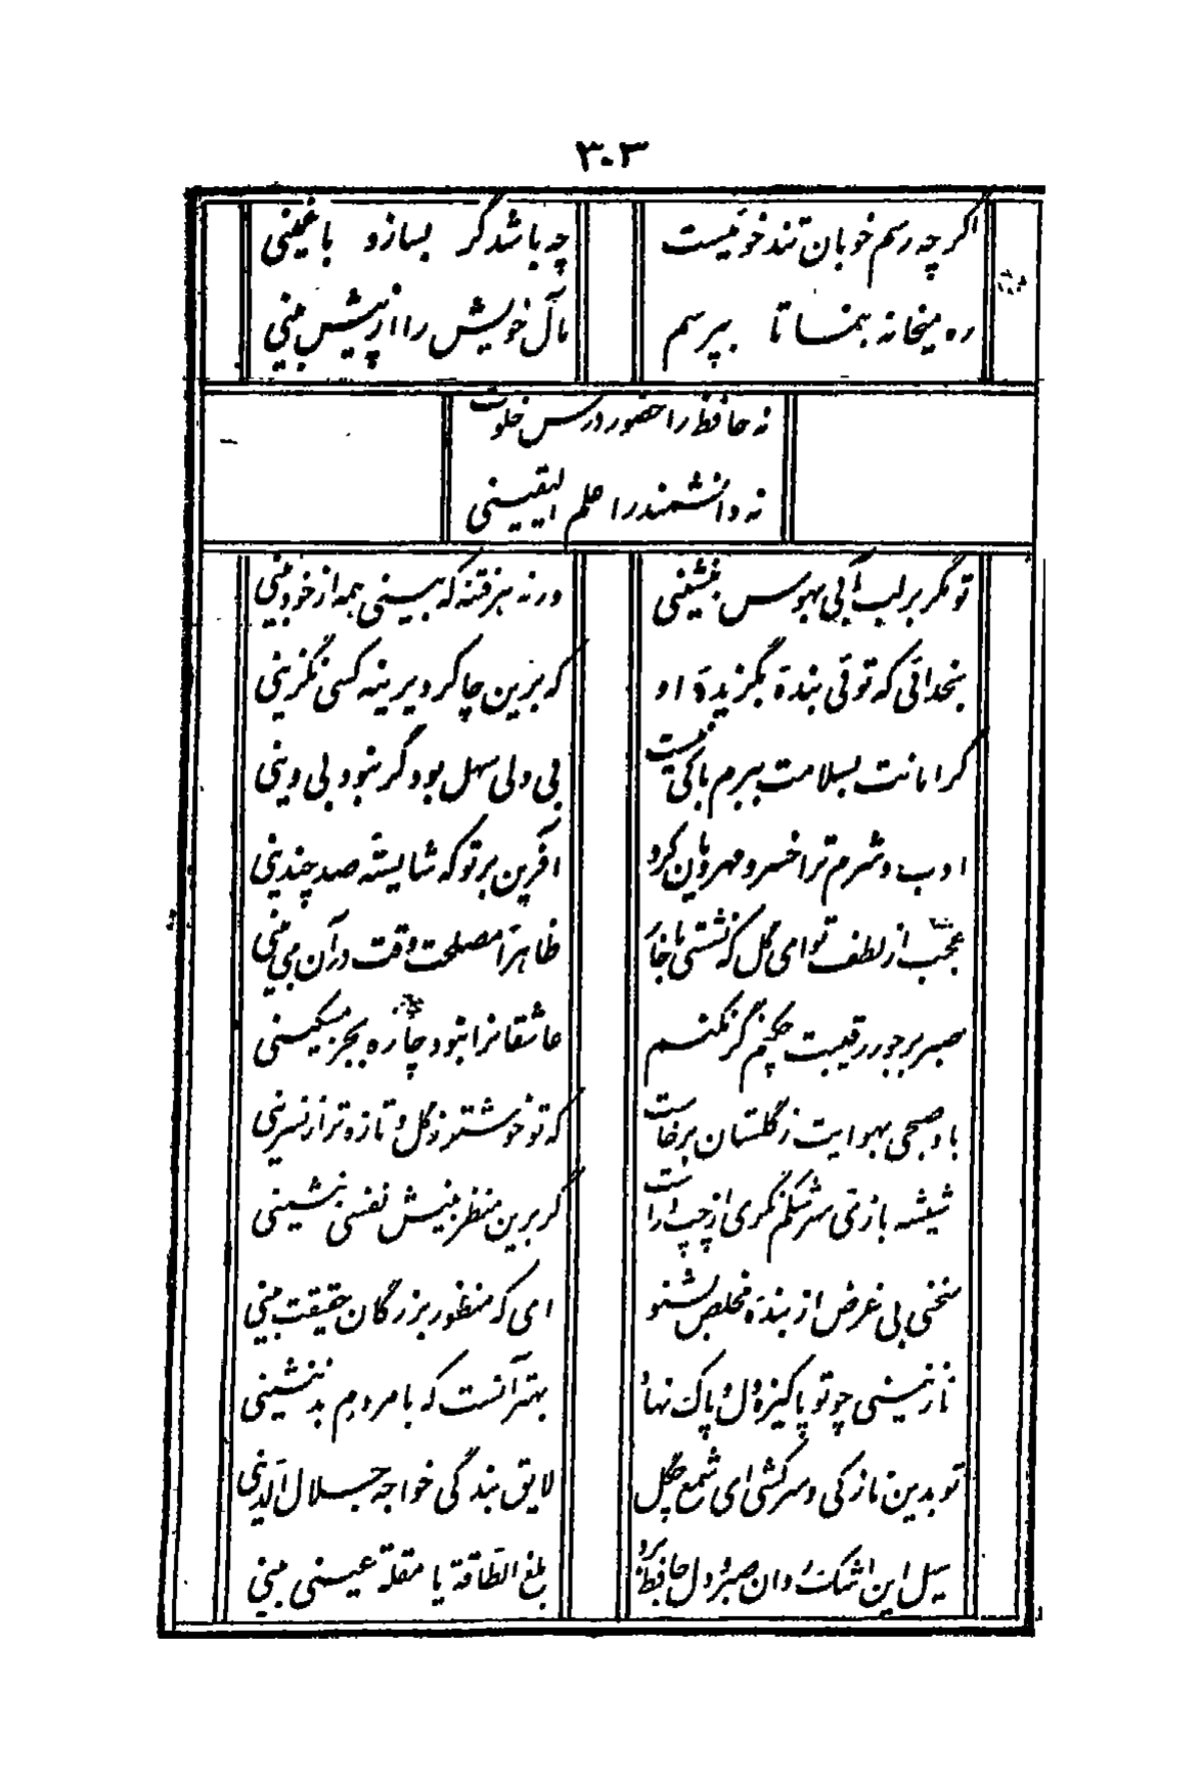 ۳۰۳
اگر چه رسم خوبان تند خوئیست
چه باشد گر بسازد با غمینی
ره میخانه بنما تا بپرسم
مآل خویش را از پیش بینی
نه حافظ را حضور درس خلوت
نه دانشمند را علم الیقینی
تو مگر بر لب آبی بهوس بنشینی
ورنه هر فتنه که بینی همه از خود بینی
بخدائی که توئی بندهٔ بگزیدهٔ او
که برین چاکر دیرینه کسی نگزینی
گر امانت بسلامت ببرم باکی نیست
بی دلی سهل بود گر نبود بی دینی
ادب و شرم ترا خسرو مهرویان کرد
آفرین بر تو که شایستهٔ صد چندینی
عجب از لطف تو ای گل که نشستی با خار
ظاهراً مصلحت وقت در آن می بینی
صبر بر جور رقیبت چکنم گر نکنم
عاشقانرا نبود چاره بجز مسکینی
باد صبحی بهوایت ز گلستان برخاست
که تو خوشتر ز گل و تازه تر از نسرینی
شیشه بازی سرشکم نگری از چپ و راست
گر برین منظر بینش نفسی بنشینی
سخنی بی غرض از بندهٔ مخلص بشنو
ای که منظور بزرگان حقیقت بینی
نازنینی چو تو پاکیزه دل و پاک نهاد
بهتر آنست که با مردم بد ننشینی
تو بدین نازکی و سرکشی ای شمع چگل
لایق بندگی خواجه جلال الدینی
سیل این اشک روان صبر و دل حافظ برد
بلغ الطاقة یا مقلة عینی بینی